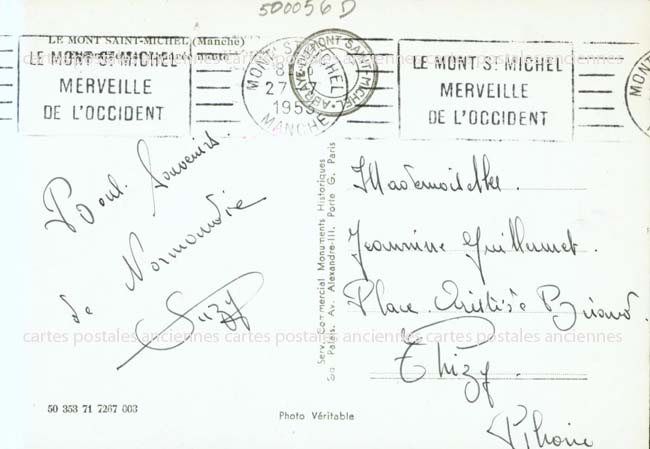 500056 D
LE MONT SAINT-MICHEL (Manche)
LE MONT St MICHEL
MERVEILLE
DE L'OCCIDENT
MONT St MICHEL
27
1955
MANCHE
ABBAYE DU MONT-SAINT-MICHEL
LE MONT St MICHEL
MERVEILLE
DE L'OCCIDENT
Souvenirs
de Normandie
Suzy
Serv. Commercial Monuments Historiques
Palais. Av. Alexandre-III. Porte G. Paris
Mademoiselle
Jeannine Guillumet.
Place Aristide Briand.
Thizy
Rhône
cartes postales anciennes cartes postales anciennes cartes postales anciennes
cartes postales anciennes cartes postales anciennes cartes postales anciennes
50 353 71 7267 003
Photo Véritable